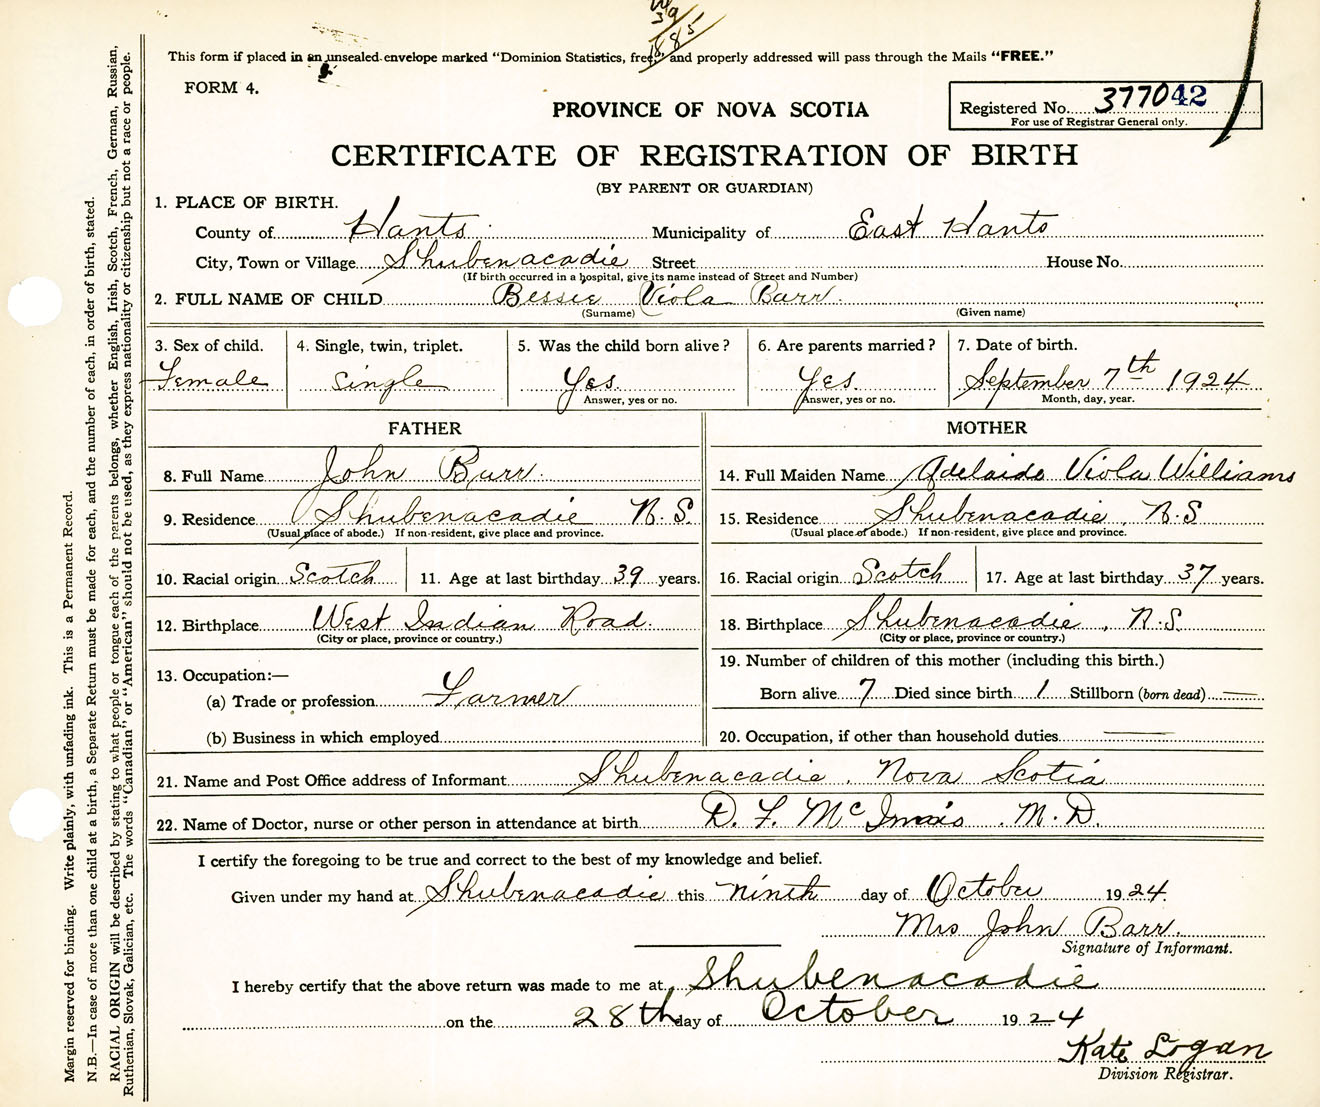 39
1885
This form if placed in an unsealed envelope marked “Dominion Statistics, free,” and properly addressed will pass through the Mails “FREE.”
FORM 4.
PROVINCE OF NOVA SCOTIA
Registered No. 377042
For use of Registrar General only.
CERTIFICATE OF REGISTRATION OF BIRTH
(BY PARENT OR GUARDIAN)
1. PLACE OF BIRTH.
County of Hants Municipality of East Hants
City, Town or Village Shubenacadie Street House No.
(If birth occurred in a hospital, give its name instead of Street and Number)
2. FULL NAME OF CHILD Bessie Viola Barr.
(Surname) (Given name)
3. Sex of child. 4. Single, twin, triplet. 5. Was the child born alive? 6. Are parents married? 7. Date of birth.
Female single Yes. Yes. September 7th 1924
Answer, yes or no. Answer, yes or no. Month, day, year.
FATHER MOTHER
8. Full Name John Barr. 14. Full Maiden Name Adelaide Viola Williams
9. Residence Shubenacadie N.S. 15. Residence Shubenacadie, N.S
(Usual place of abode.) If non-resident, give place and province. (Usual place of abode.) If non-resident, give place and province.
10. Racial origin Scotch 11. Age at last birthday 39 years. 16. Racial origin Scotch 17. Age at last birthday 37 years.
12. Birthplace West Indian Road. 18. Birthplace Shubenacadie, N.S.
(City or place, province or country.) (City or place, province or country.)
13. Occupation:— 19. Number of children of this mother (including this birth.)
(a) Trade or profession Farmer Born alive 7 Died since birth 1 Stillborn (born dead) —
(b) Business in which employed 20. Occupation, if other than household duties —
21. Name and Post Office address of Informant Shubenacadie. Nova Scotia
22. Name of Doctor, nurse or other person in attendance at birth D. F. M. D.
I certify the foregoing to be true and correct to the best of my knowledge and belief.
Given under my hand at Shubenacadie this ninth day of October 1924.
Mrs John Barr.
Signature of Informant.
I hereby certify that the above return was made to me at Shubenacadie
on the 28th day of October 1924
Kate Logan
Division Registrar.
Margin reserved for binding. Write plainly, with unfading ink. This is a Permanent Record.
N.B.—In case of more than one child at a birth, a Separate Return must be made for each, and the number of each, in order of birth, stated.
RACIAL ORIGIN will be described by stating to what people or tongue each of the parents belongs, whether English, Irish, Scotch, French, German, Russian,
Ruthenian, Slovak, Galician, etc. The words “Canadian” or “American” should not be used, as they express nationality or citizenship but not a race or people.